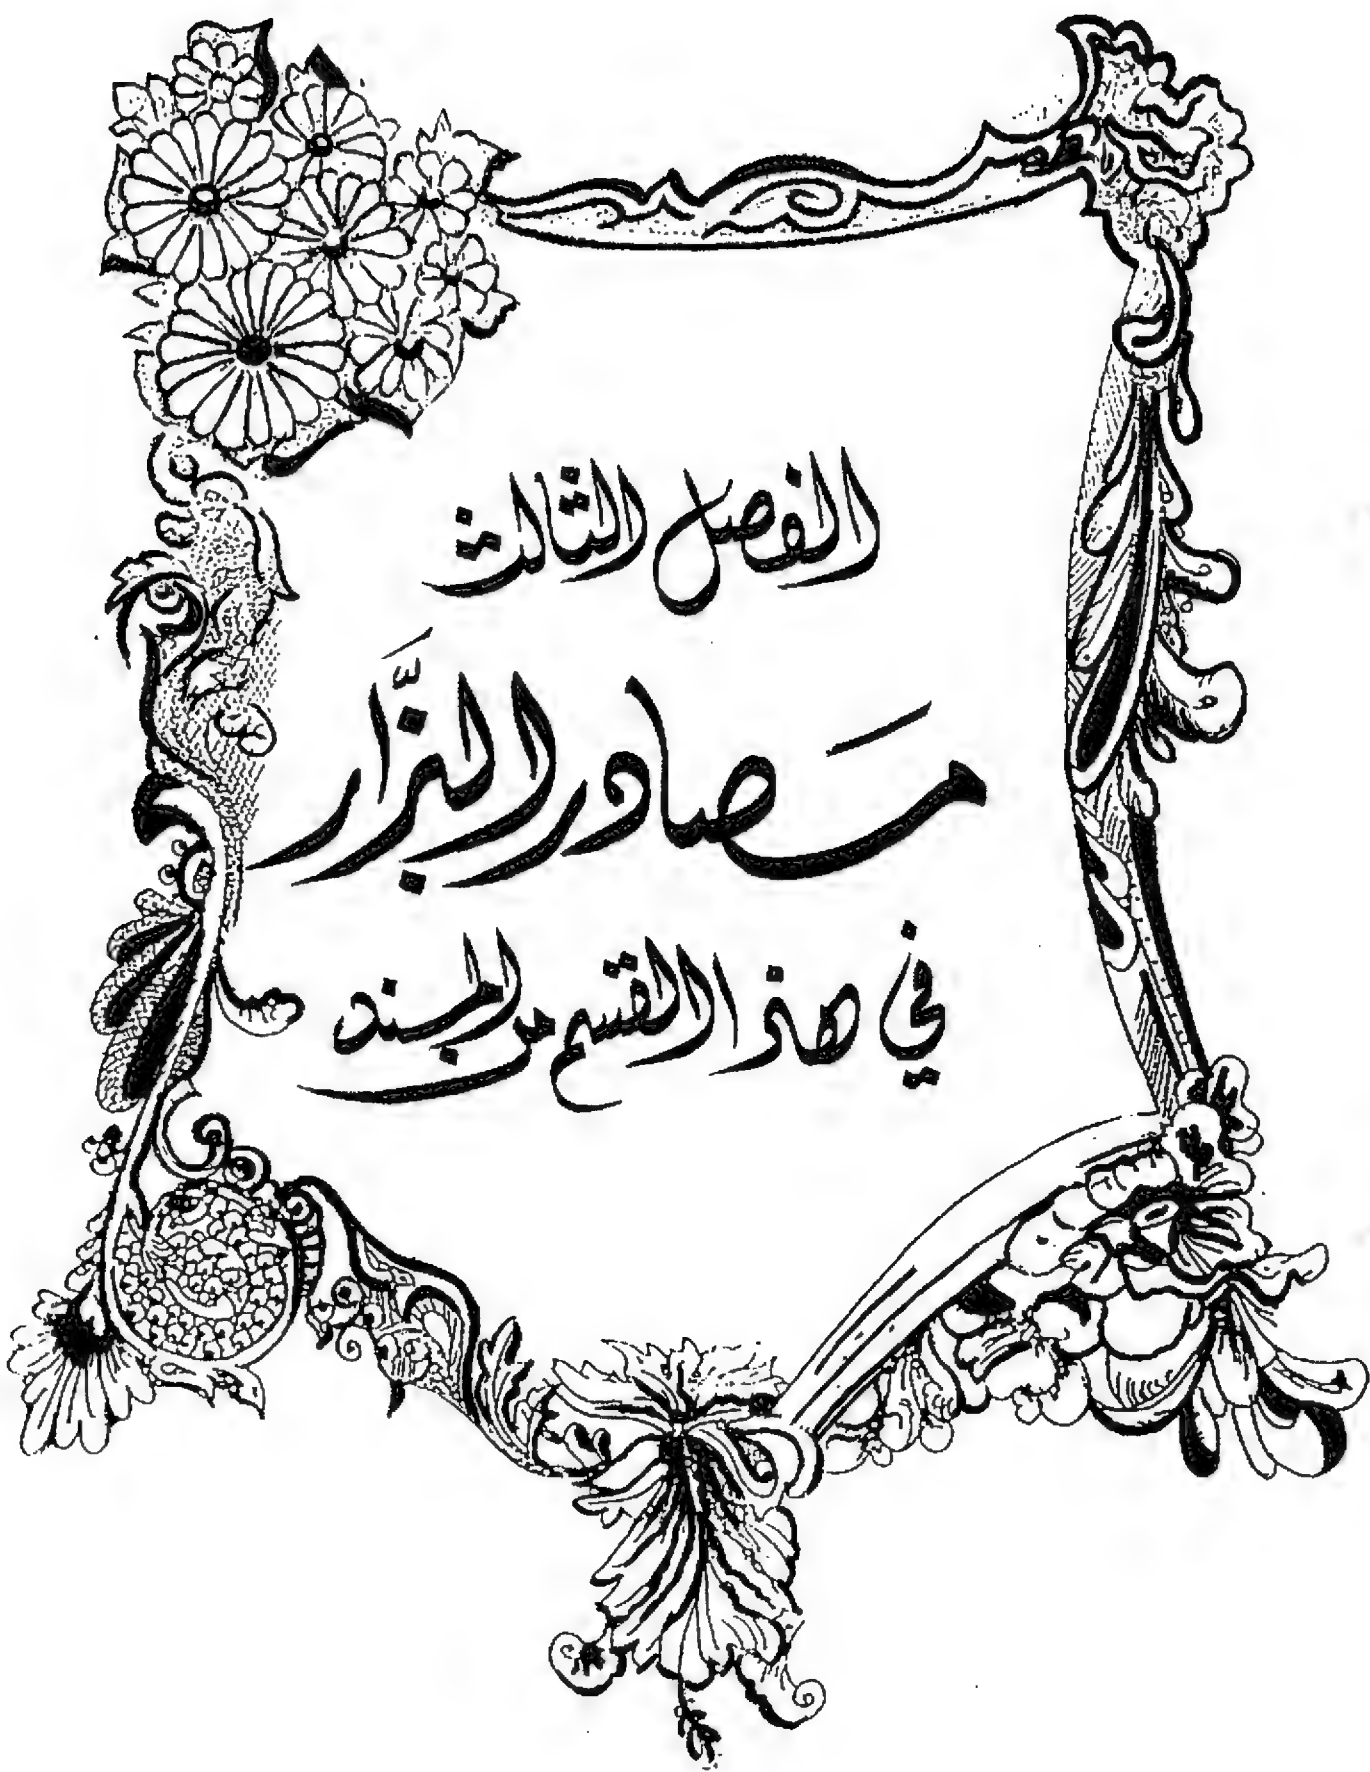 الفصل الثالث
مَصادر البزَّار
في هذا القسم من المسند